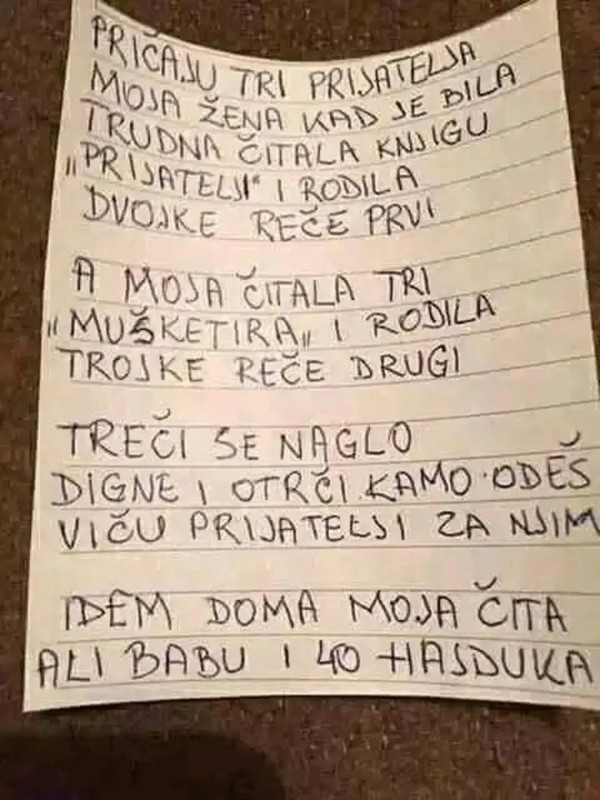 PRIČAJU TRI PRIJATELJA
MOJA ŽENA KAD JE BILA
TRUDNA ČITALA KNJIGU
„PRIJATELJI" I RODILA
DVOJKE REČE PRVI
A MOJA ČITALA TRI
„MUŠKETIRA„ I RODILA
TROJKE REČE DRUGI
TREČI SE NAGLO
DIGNE I OTRČI KAMO ODEŠ
VIČU PRIJATELJI ZA NJIM
IDEM DOMA MOJA ČITA
ALI BABU I 40 HAJDUKA